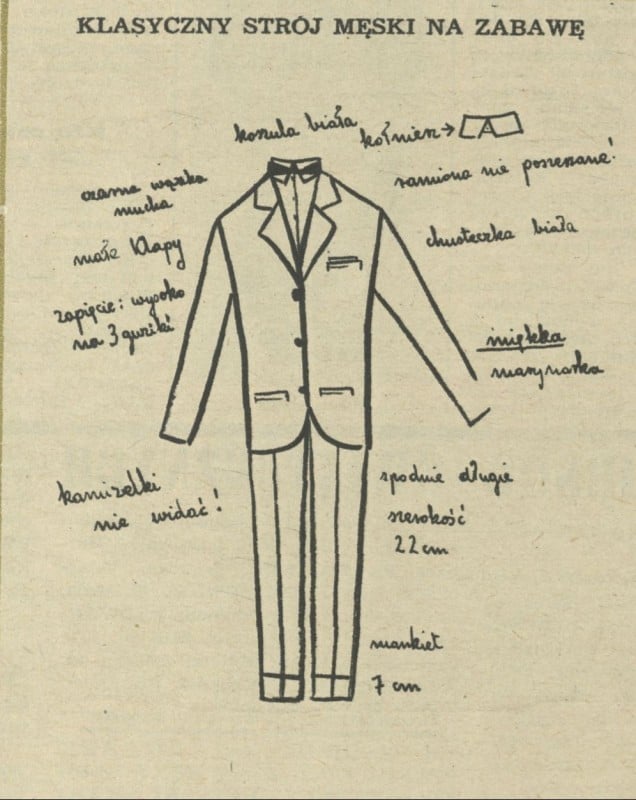 KLASYCZNY STRÓJ MĘSKI NA ZABAWĘ
koszula biała
kołnierz →
czarna wązka
mucha
ramiona nie poszerzane!
małe klapy
chusteczka biała
zapięcie: wysoko
na 3 guziki
miękka
marynarka
kamizelki
nie widać!
spodnie długie
szerokość
22 cm
mankiet
7 cm